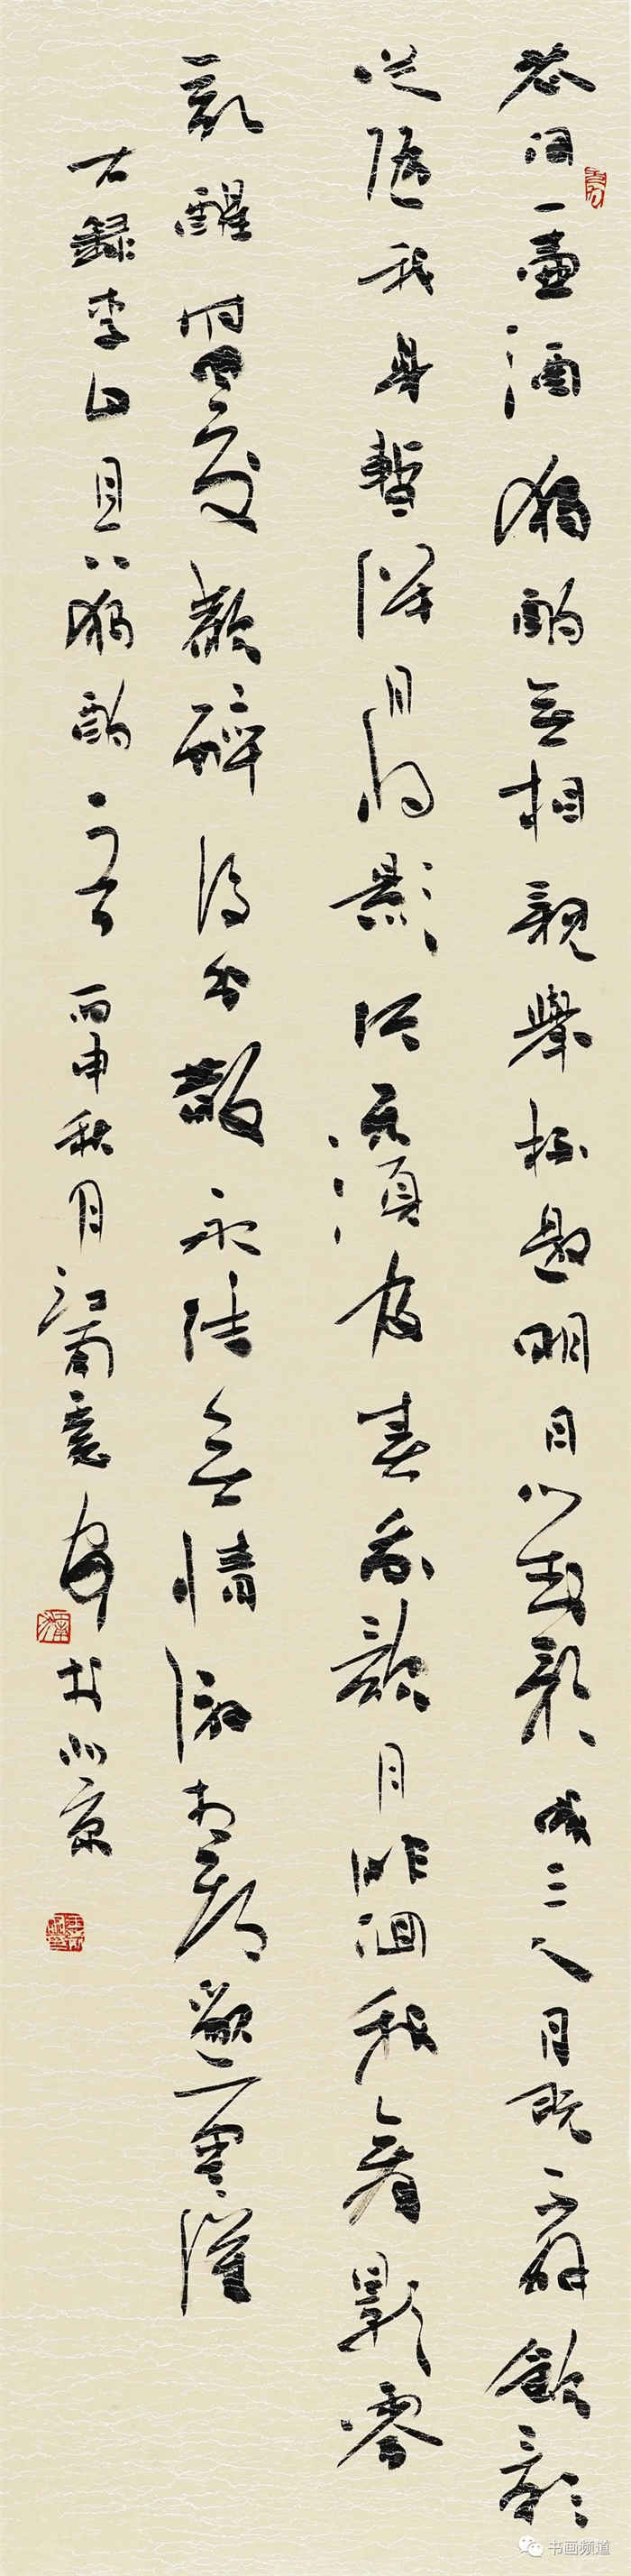 花間一壺酒獨酌無相親舉杯邀明月對影成三人月既不解飲影
徒隨我身暫伴月將影行樂須及春我歌月徘徊我舞影零
亂醒時同交歡醉後各分散永結無情遊相期邈雲漢
右錄李白月下獨酌 丙申秋月江南於北京
书画频道